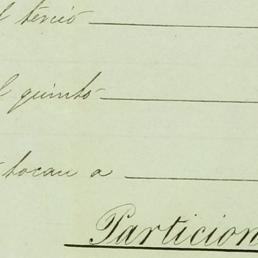 l tercio
l quinto
tocan a
Particion